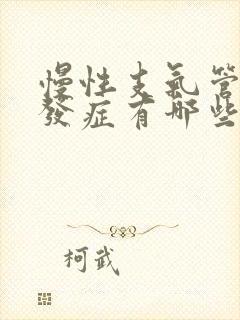 慢性支氣管
發症有哪些
柯武